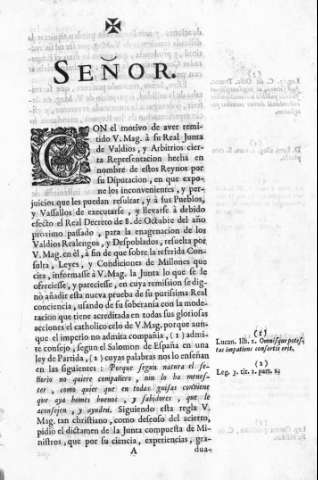 SEÑOR.
CON el motivo de aver remi-
tido V. Mag. à su Real Junta
de Valdios, y Arbitrios cier-
ta Representacion hecha en
nombre de estos Reynos por
su Diputacion, en que expo-
ne los inconvenientes, y per-
juicios que les puedan resultar, y à sus Pueblos,
y Vassallos de executarse, y llevarse à debido
efecto el Real Decreto de 8. de Octubre del año
proximo passado, para la enagenacion de los
Valdios Realengos, y Despoblados, resuelta por
V. Mag. en èl, à fin de que sobre la referida Con-
sulta, Leyes, y Condiciones de Millones que
cita, informasse à V. Mag. la Junta lo que se le
ofreciesse, y pareciesse, en cuya remission se dig-
nò añadir esta nueva prueba de su purissima Real
conciencia, usando de su soberanía con la modera-
cion que tiene acreditada en todas sus gloriosas
acciones el catholico celo de V. Mag. porque aun-
que el imperio no admita compañia, (1) admi-
te consejo, segun el Salomon de España en una
ley de Partida, (2) cuyas palabras nos lo enseñan
en las siguientes: Porque segun natura el se-
ñorio no quiere compañero, nin lo ha menes-
ter, como quier que en todas guisas conviene
que aya homes buenos, y sabidores, que le
aconsejen, y ayuden. Siguiendo esta regla V.
Mag. tan christiano, como deseoso del acierto,
pidio el dictamen de la Junta compuesta de Mi-
nistros, que por su ciencia, experiencias, gra-
A dua-
(1)
Lucan. lib. 1. Omnisque potes-
tas impatiens consortis erit.
(2)
Leg. 3. tit. 1. part. 2.